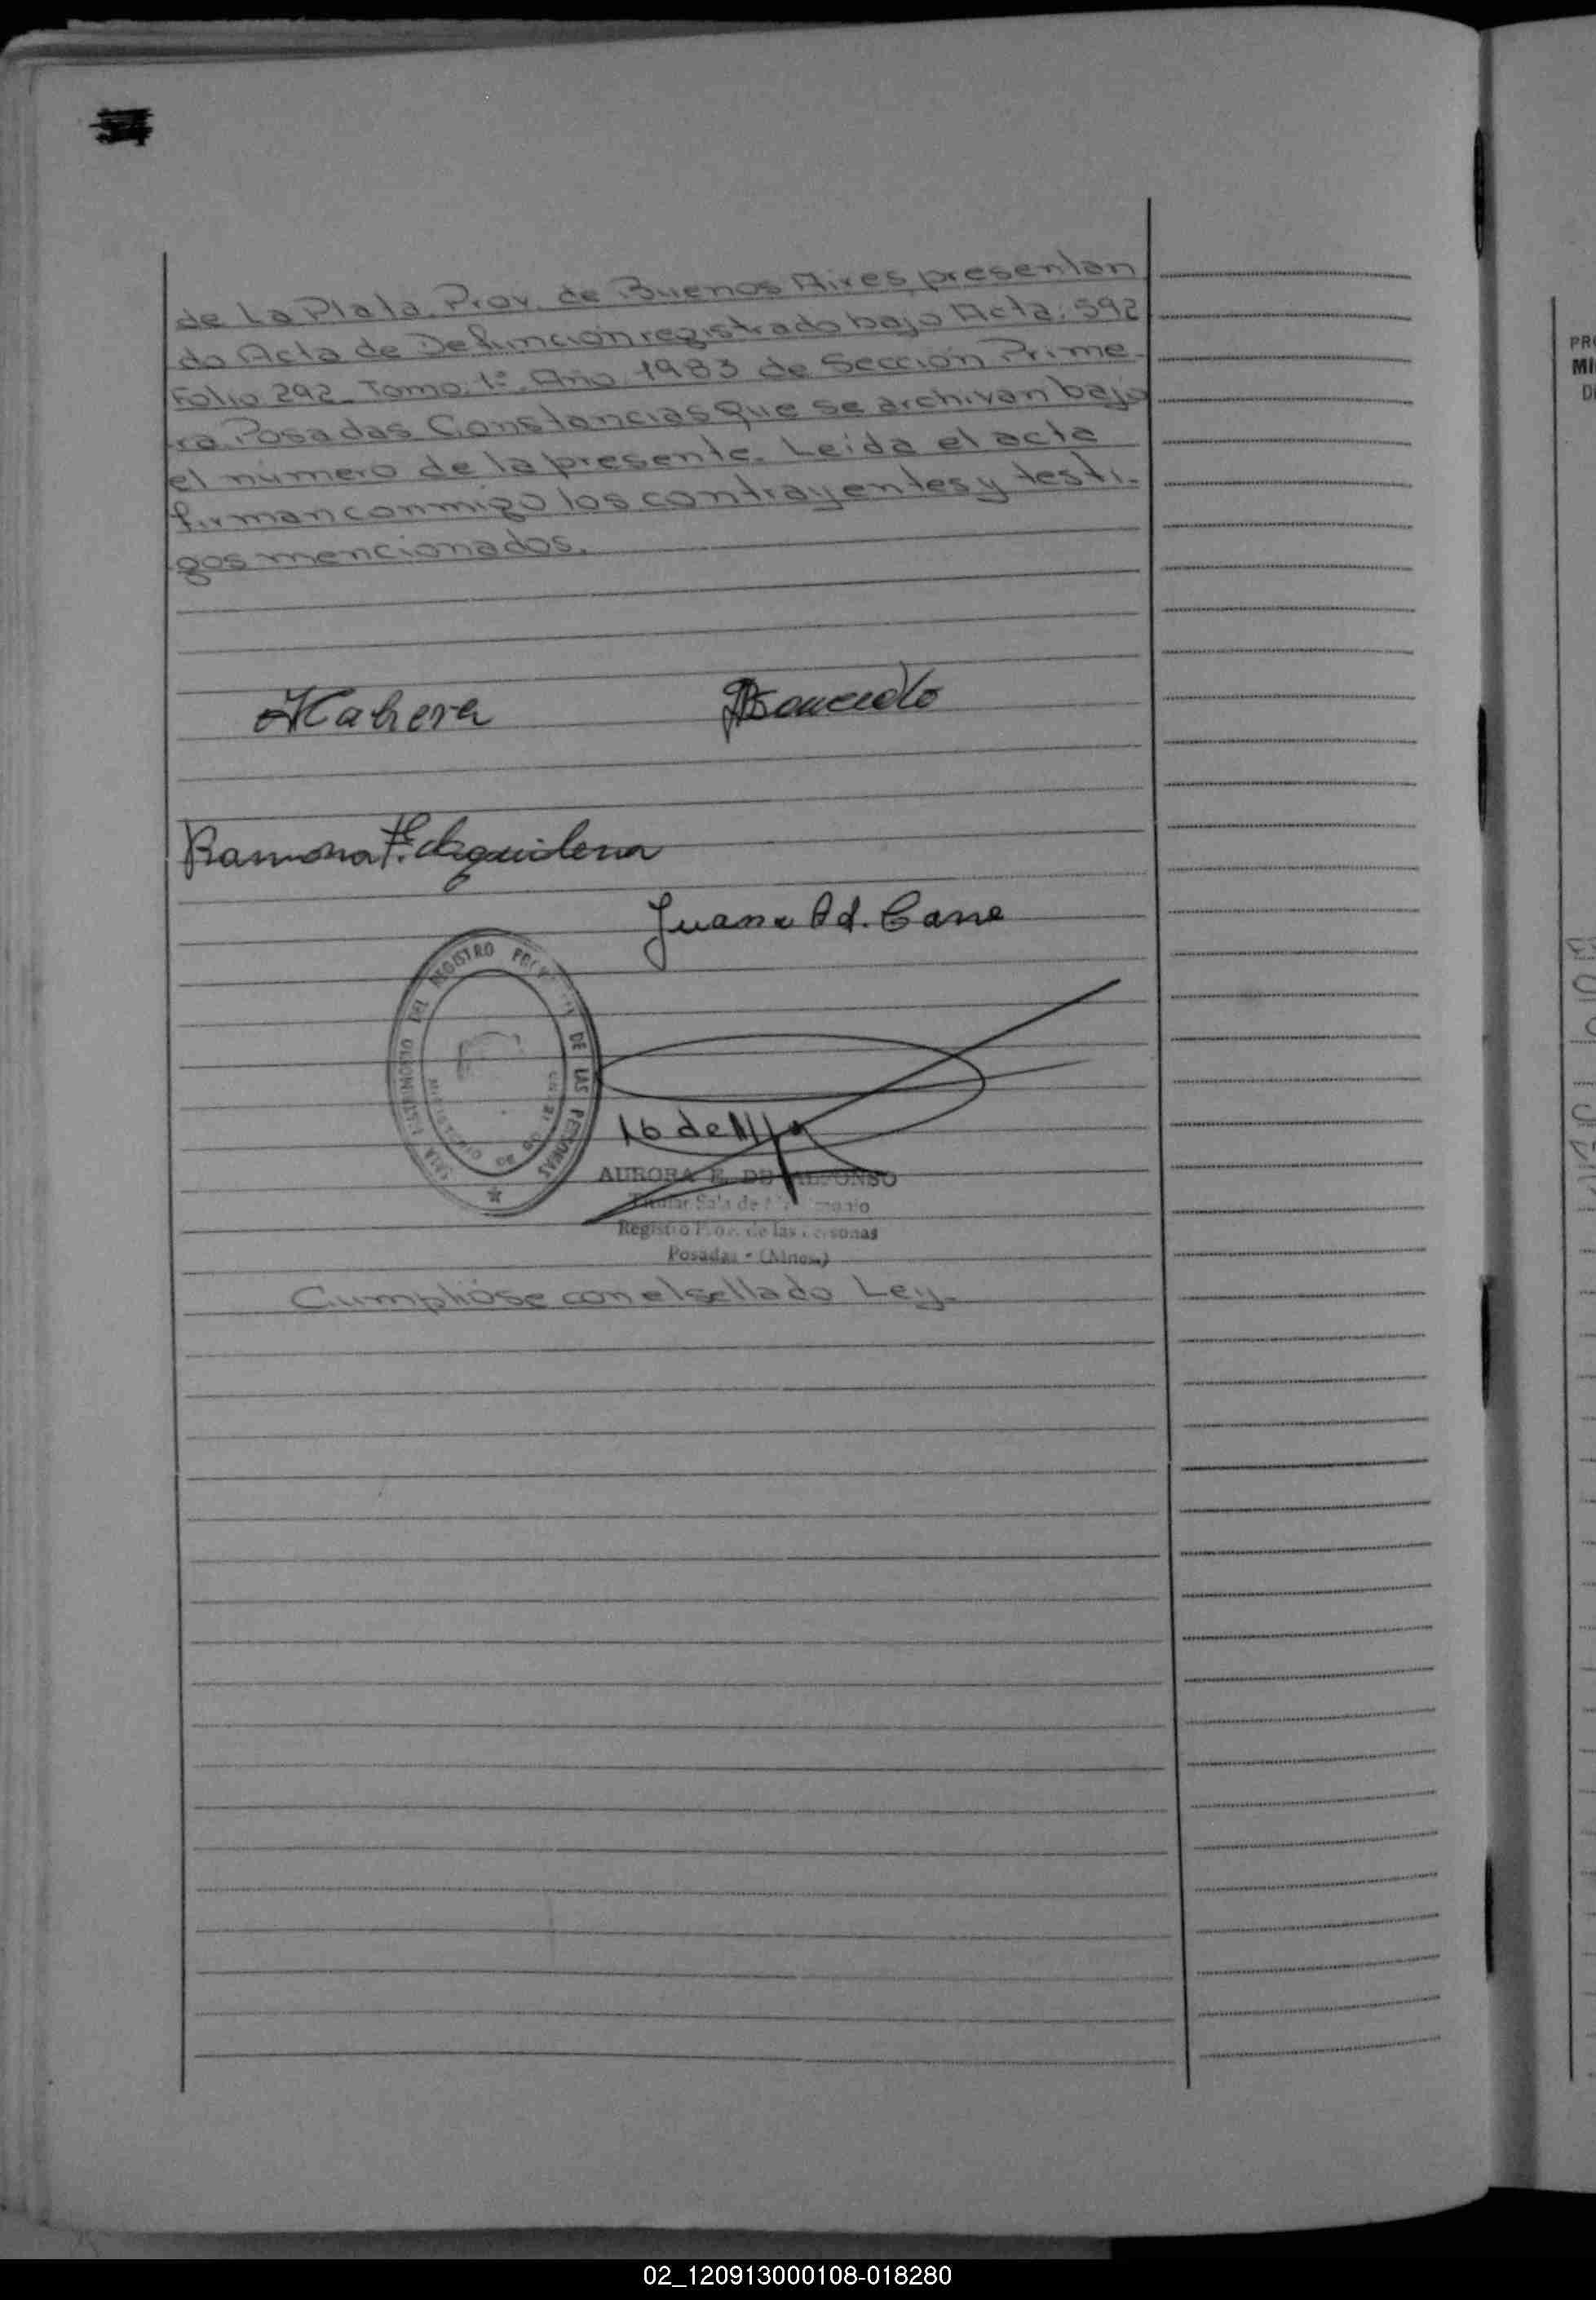 de La Plata. Prov. de Buenos Aires, presentan
do Acta de Defunción registrado bajo Acta: 592
Folio 292. Tomo: 1º. Año 1983 de Sección Prime-
ra Posadas Constancias que se archivan bajo
el número de la presente. Leída el acta
firman conmigo los contrayentes y testi-
gos mencionados.
Ramona
Juana Cane
SALA MATRIMONIO DEL REGISTRO DE LAS PERSONAS
16 de
AURORA E. DE ALFONSO
Titular Sala de
Registro de las Personas
Posadas - (Mnes.)
Cumplióse con el sellado Ley.
PR
MI
D
02_120913000108-018280